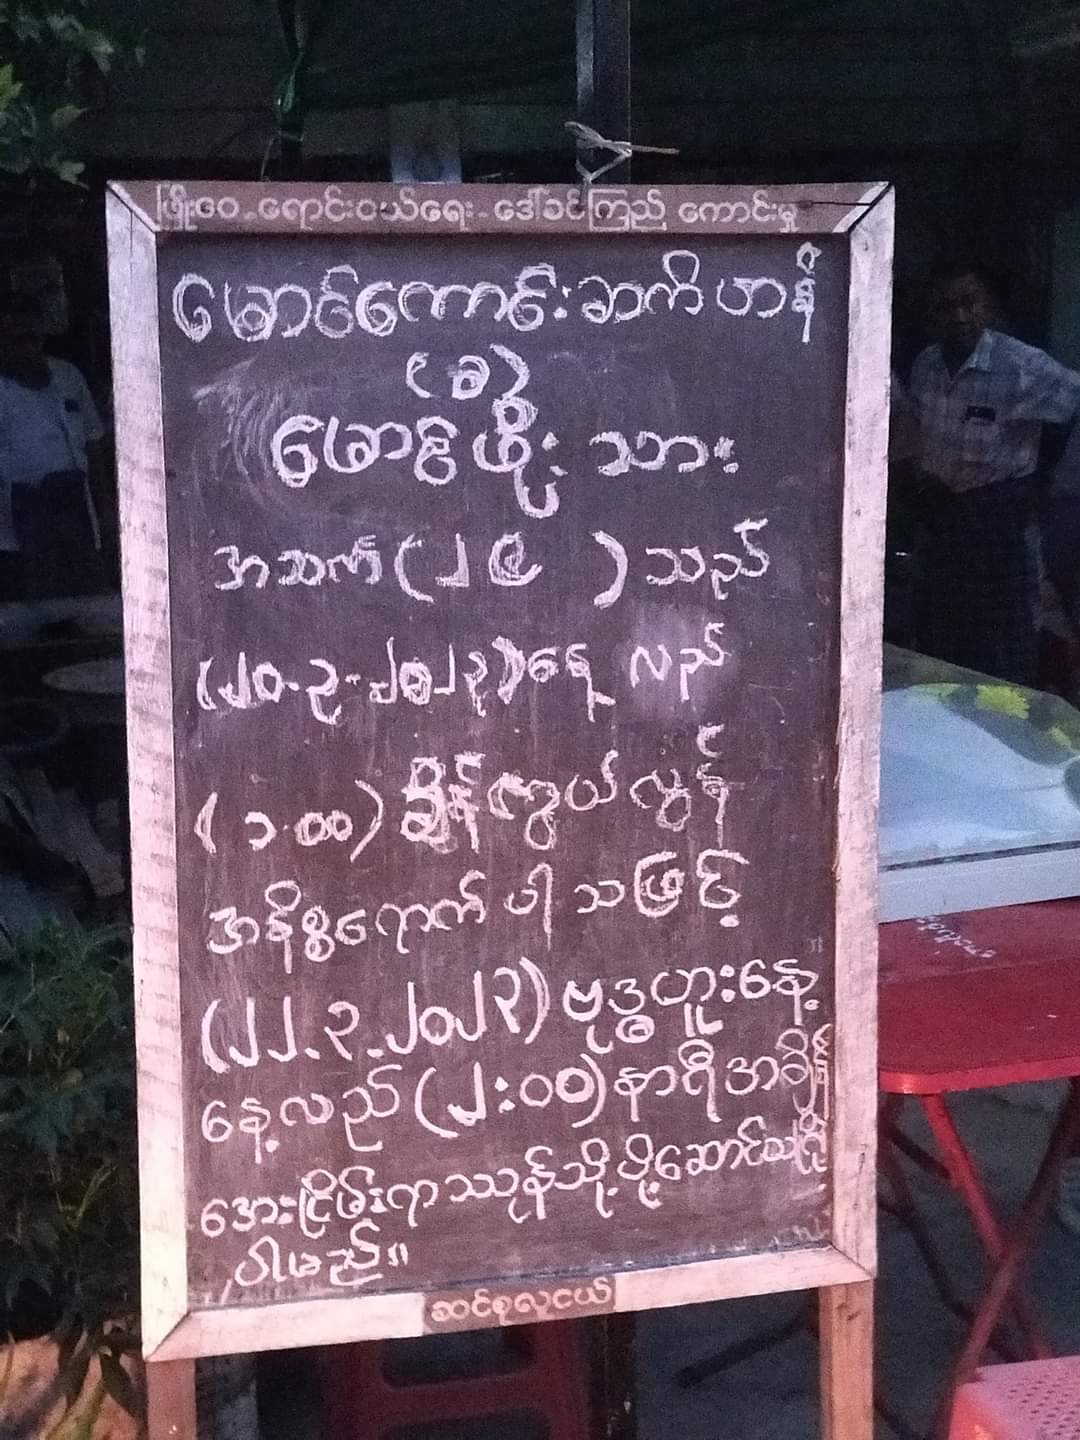 ဖြိုးဝေ-ရောင်းဝယ်ရေး-ဒေါ်ခင်ကြည် ကောင်းမှု
မောင်ကောင်းဆက်ဟာန်
(ခ)
မောင်ဖိုးသား
အသက်(၂၄ )သည်
(၂၀-၃-၂၀၂၃)နေ့ လည်
(၁:၀၀)ချိန်ကွယ်လွန်
အနိစ္စရောက်ပါသဖြင့်
(၂၂.၃.၂၀၂၃)ဗုဒ္ဓဟူးနေ့
နေ့လည်(၂:၀၀)နာရီအချိန်
အေးငြိမ်းရာသုဿန်သို့ပို့ဆောင်သဂြိုဟ်
ပါမည်။
ဆင်စုလူငယ်